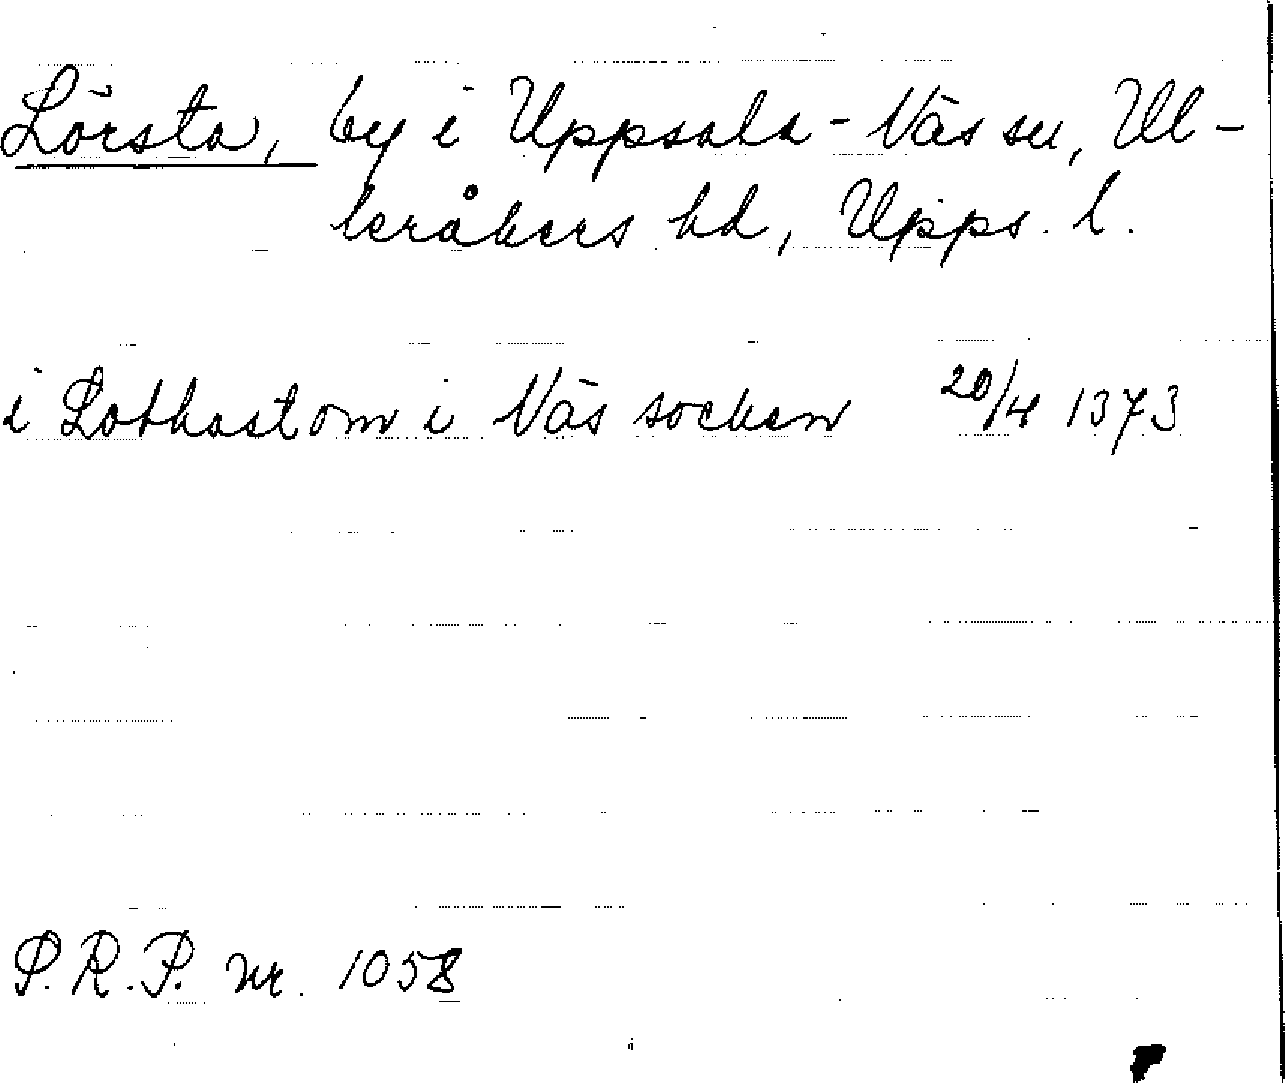 Lörsta, by i Uppsala-Näs sn, Ul-
leråkers hd, Upps. l.
i Lothastom i Näs socken 20/4 1373
S.R.P. nr. 1058